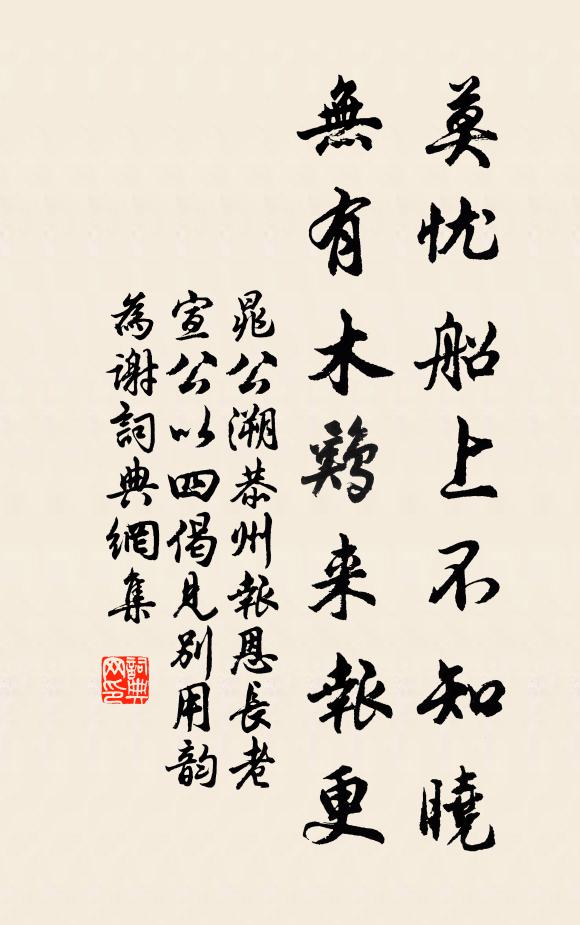 莫忧船上不知曉
無有木鷄来報更
晁公溯恭州報恩長老
宣公以四偈見別用韵
為謝詞典網集
詞典网印